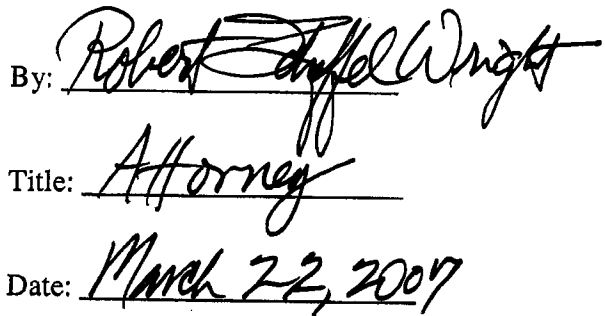 By: Robert Scheffel Wright
Title: Attorney
Date: March 22, 2007